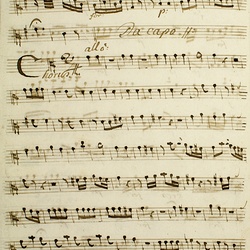 for p:
Da capo
allo:
Chorus